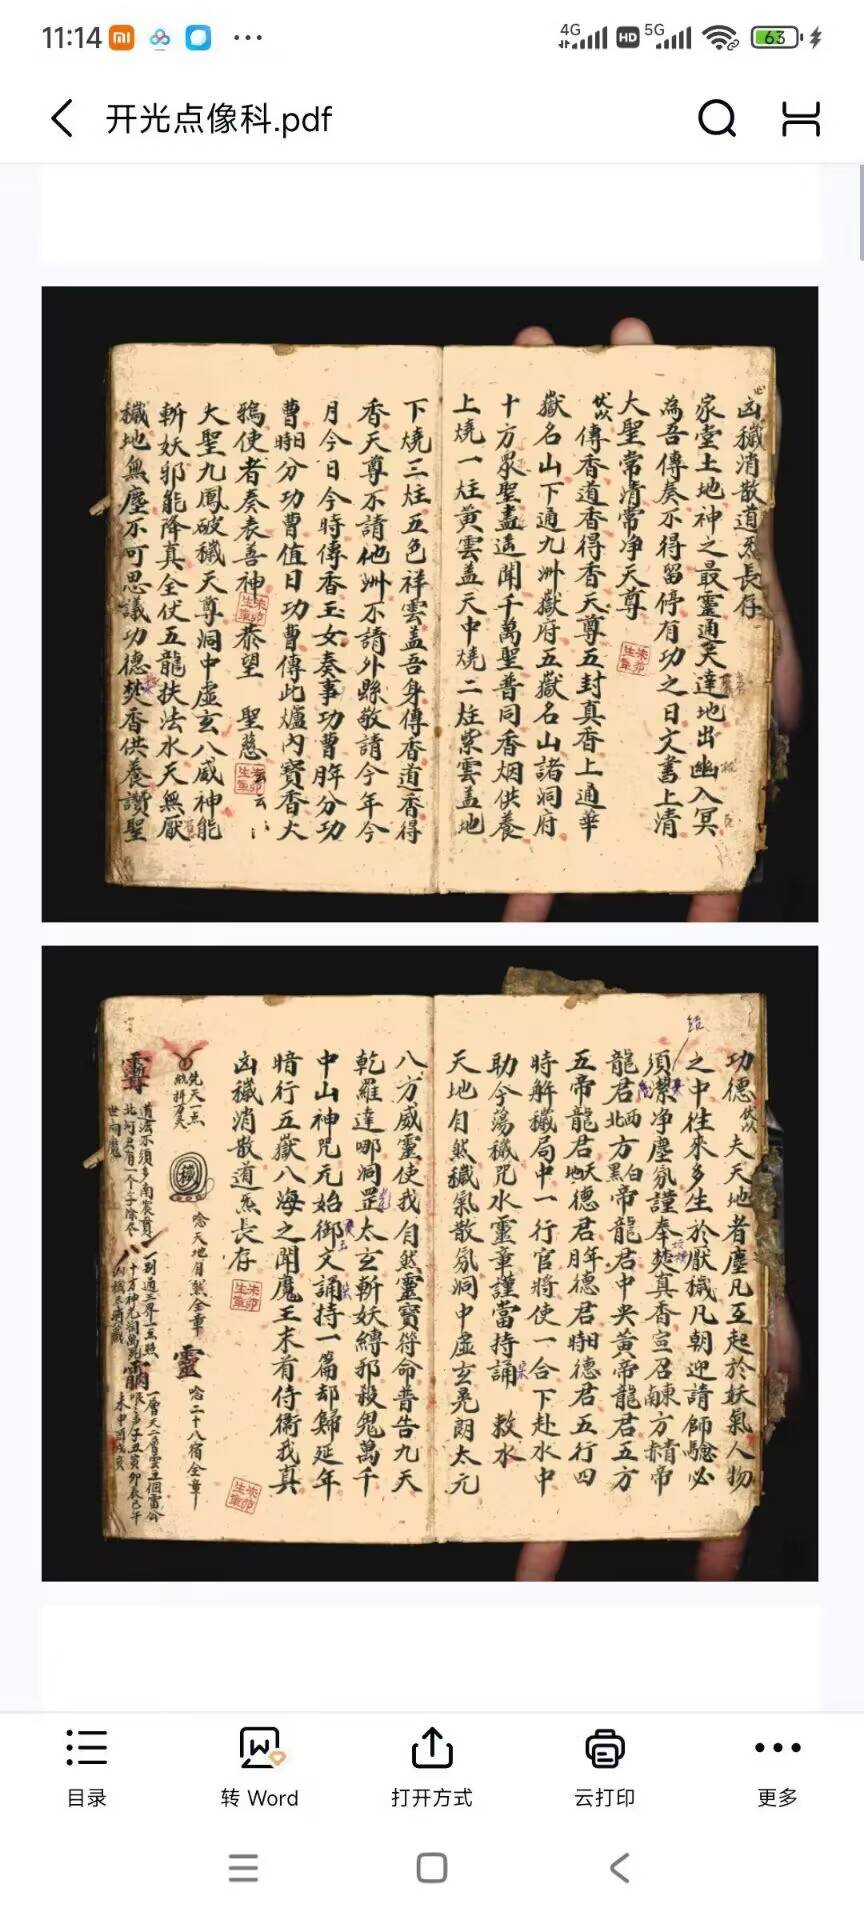 11:14
4G HD 5G 63
开光点像科.pdf
凶穢消散道炁長存
家堂土地神之最靈通天達地出幽入冥
為吾傳奏不得留停有功之日文書上清
大聖常清常净天尊
伏以傳香道香得香天尊五封真香上通華
嶽名山下通九洲嶽府五嶽名山諸洞府
十方眾聖盡遙聞千萬聖普同香烟供養
上燒一炷黃雲盖天中燒二炷紫雲盖地
下燒三炷五色祥雲盖吾身傳香道香得
香天尊不請他洲不請外縣敬請今年今
月今日今時傳香玉女奏事功曹年分功
曹時分功曹值日功曹傳此爐內寶香火
鴉使者奏表善神恭望 聖慈云云
大聖九鳳破穢天尊洞中虛玄八威神能
斬妖邪能降真全伏五龍扶法水天無厭
穢地無塵不可思議功德焚香供養讚聖
功德伏以夫天地者塵凡互起於妖氣人物
之中往來多生於厭穢凡朝迎請師聖必
須潔净塵氛謹奉焚真香宣召東南方青赤帝
龍君西北方白黑帝龍君中央黃帝龍君五方
五帝龍君天地德君年德君時日德君五行四
時解穢局中一行官將使一合下赴水中
助今蕩穢咒水靈章謹當持誦 敕水
天地自然穢氣散氛洞中虛玄晃朗太元
八方威靈使我自然靈寶符命普告九天
乾羅達哪洞罡太玄斬妖縛邪殺鬼萬千
中山神咒元始御文誦持一篇却歸延年
暗行五嶽八海之聞魔王末首侍衛我真
凶穢消散道炁長存
先天一点
穢
唸天地自然全章
靈
唸二十八宿全章
道法不須多南宸貫
北河只有一个子除尽
世間魔
一到通三界一点照
十方神光
目录
转 Word
打开方式
云打印
更多